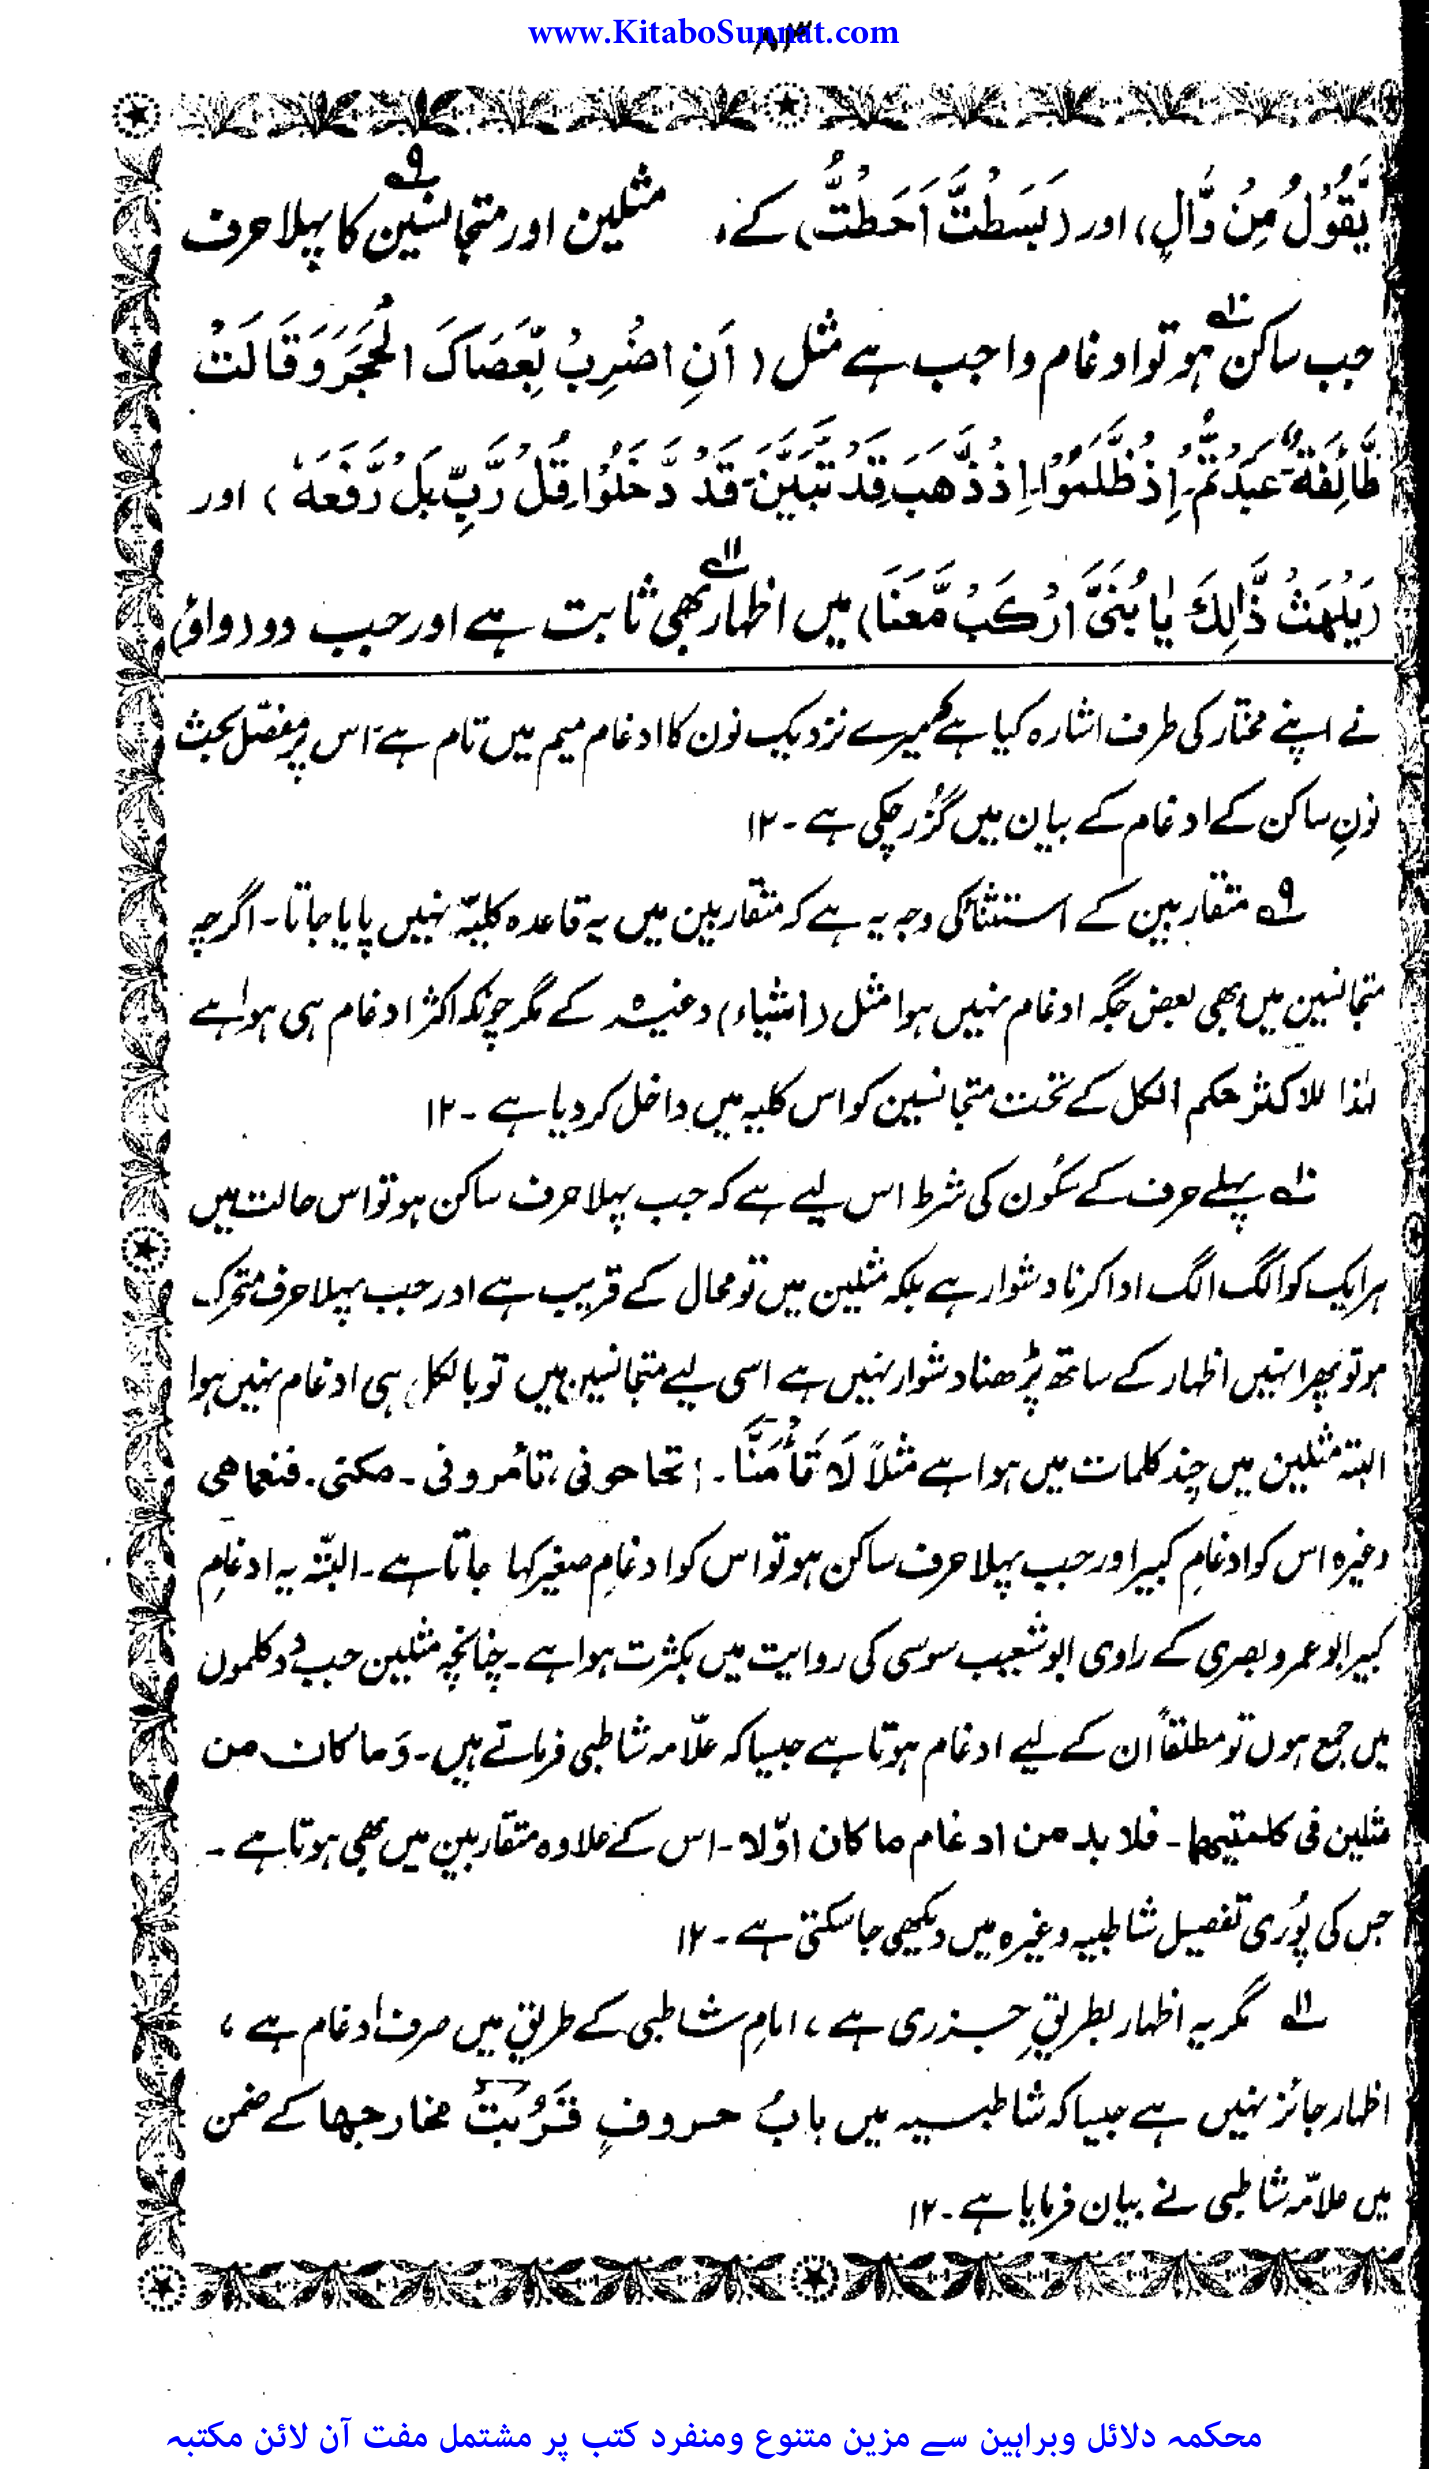 www.KitaboSunnat.com
۸۳
یَّقُوْلُ مِنْ وَّالٍ) اور (بَسَطْتَّ اَحَطْتُّ) کے، مثلین اور متجانسین۹ کا پہلا حرف
جب ساکن۱۰ ہو تو ادغام واجب ہے مثل (اَنِ اضْرِبْ بِّعَصَاکَ الْحَجَرَ وَقَالَتْ
طَّائِفَةٌ۔ عَبَدْتُّمْ۔ اِذْ ظَّلَمُوْا۔ اِذْ ذَّهَبَ قَدْ تَّبَیَّنَ۔ قَدْ دَّخَلُوْا۔ قُلْ رَّبِّ بَلْ رَّفَعَهُ) اور
(یَلْهَثْ ذَّالِكَ یٰا بُنَیَّ ارْکَبْ مَّعَنَا) میں اظہار۱۱ بھی ثابت ہے اور جب دو (واؤ)
نے اپنے مختار کی طرف اشارہ کیا ہے کہ میرے نزدیک نون کا ادغام میم میں تام ہے، اس پر مفصّل بحث
نونِ ساکن کے ادغام کے بیان میں گزُر چکی ہے ۔ ۱۲
۹ متقاربین کے استثنا کی وجہ یہ ہے کہ متقاربین میں یہ قاعدہ کلیّہ نہیں پایا جاتا۔ اگرچہ
متجانسین میں بھی بعض جگہ ادغام نہیں ہوا مثل (اشیاء) وغیرہ کے مگر چونکہ اکثر ادغام ہی ہوا ہے
لہٰذا للاکثر حکم الکل کے تحت متجانسین کو اس کلیہ میں داخل کر دیا ہے ۔ ۱۲
۱۰ پہلے حرف کے سکُون کی شرط اس لیے ہے کہ جب پہلا حرف ساکن ہو تو اس حالت میں
ہر ایک کو الگ الگ ادا کرنا دشوار ہے بلکہ مثلین میں تو محال کے قریب ہے اور جب پہلا حرف متحرک
ہو تو پھر انہیں اظہار کے ساتھ پڑھنا دشوار نہیں ہے اسی لیے متجانسین میں تو بالکل ہی ادغام نہیں ہوا
البتہ مثلین میں چند کلمات میں ہوا ہے مثلاً لَا تَأْمَنَّا ۔ اتحاجونی، تأمرونی ۔ مکنی ۔ فنعماھی
وغیرہ اس کو ادغامِ کبیر اور جب پہلا حرف ساکن ہو تو اس کو ادغامِ صغیر کہا جاتا ہے ۔ البتّہ یہ ادغامِ
کبیر ابوعمرو بصری کے راوی ابوشعیب سوسی کی روایت میں بکثرت ہوا ہے ۔ چنانچہ مثلین جب دو کلموں
میں جمع ہوں تو مطلقاً ان کے لیے ادغام ہوتا ہے جیسا کہ علّامہ شاطبی فرماتے ہیں ۔ وَما کان من
مثلین فی کلمتیھما ۔ فلا بد من ادغام ما کان اوّلا ۔ اس کے علاوہ متقاربین میں بھی ہوتا ہے ۔
جس کی پُوری تفصیل شاطبیہ وغیرہ میں دیکھی جا سکتی ہے ۔ ۱۲
۱۱ مگر یہ اظہار بطریقِ جزری ہے، امامِ شاطبی کے طریق میں صرف ادغام ہے،
اظہار جائز نہیں ہے جیسا کہ شاطبیہ میں بابُ حروفٍ قَرُبَتْ مخارجھا کے ضمن
میں علامّہ شاطبی نے بیان فرمایا ہے ۔ ۱۲
محکمہ دلائل وبراہین سے مزین متنوع ومنفرد کتب پر مشتمل مفت آن لائن مکتبہ